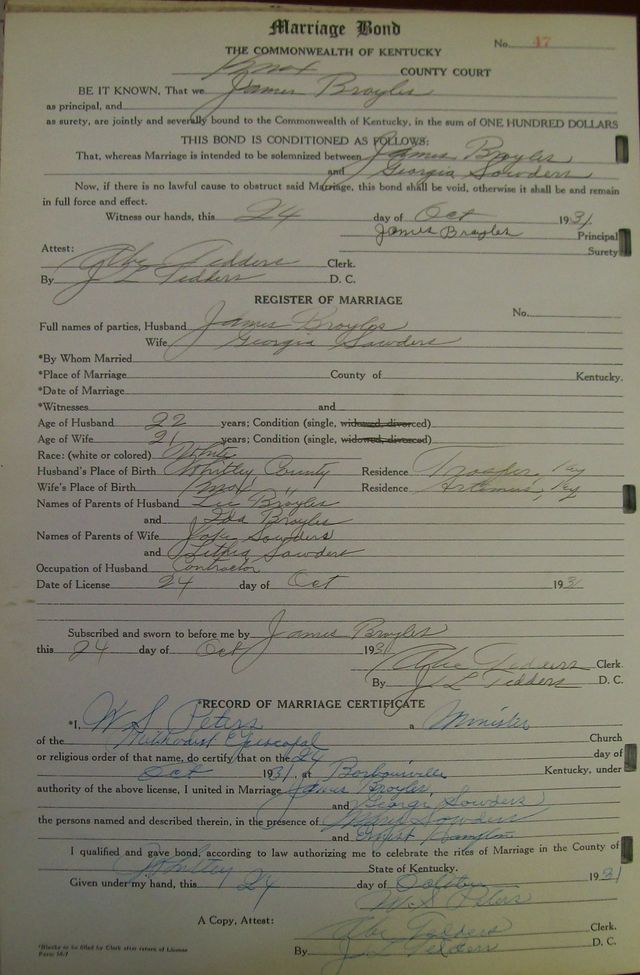 Marriage Bond
No. 47
THE COMMONWEALTH OF KENTUCKY
Knox COUNTY COURT
BE IT KNOWN, That we James Broyles
as principal, and
as surety, are jointly and severally bound to the Commonwealth of Kentucky, in the sum of ONE HUNDRED DOLLARS
THIS BOND IS CONDITIONED AS FOLLOWS:
That, whereas Marriage is intended to be solemnized between James Broyles
and Georgia Sowders
Now, if there is no lawful cause to obstruct said Marriage, this bond shall be void, otherwise it shall be and remain
in full force and effect.
Witness our hands, this 24 day of Oct 1931.
James Broyles Principal
Surety
Attest:
Abe Tedders Clerk.
By J L Tedders D. C.
REGISTER OF MARRIAGE
No.
Full names of parties, Husband James Broyles
Wife Georgia Sowders
*By Whom Married
*Place of Marriage County of Kentucky.
*Date of Marriage
*Witnesses and
Age of Husband 22 years; Condition (single, widowed, divorced)
Age of Wife 21 years; Condition (single, widowed, divorced)
Race: (white or colored) White
Husband's Place of Birth Whitley County Residence Trosper, Ky
Wife's Place of Birth Knox " Residence Artemus, Ky
Names of Parents of Husband Lee Broyles
and Ida Broyles
Names of Parents of Wife Sowders
and Lithia Sowders
Occupation of Husband Contractor
Date of License 24 day of Oct 1931
Subscribed and sworn to before me by James Broyles
this 24 day of Oct 1931
Abe Tedders Clerk
By J L Tedders D. C.
*RECORD OF MARRIAGE CERTIFICATE
*I, W S Peters a Minister
of the Methodist Episcopal Church
or religious order of that name, do certify that on the 24 day of
Oct 1931, at Barbourville Kentucky, under
authority of the above license, I united in Marriage James Broyles
and Georgia Sowders
the persons named and described therein, in the presence of Sowders
and Hampton
I qualified and gave bond, according to law authorizing me to celebrate the rites of Marriage in the County of
Whitley State of Kentucky.
Given under my hand, this 24 day of October 1931
W. S. Peters
A Copy, Attest: Abe Tedders Clerk.
By J L Tedders D. C.
*Blanks to be filled by Clerk after return of License